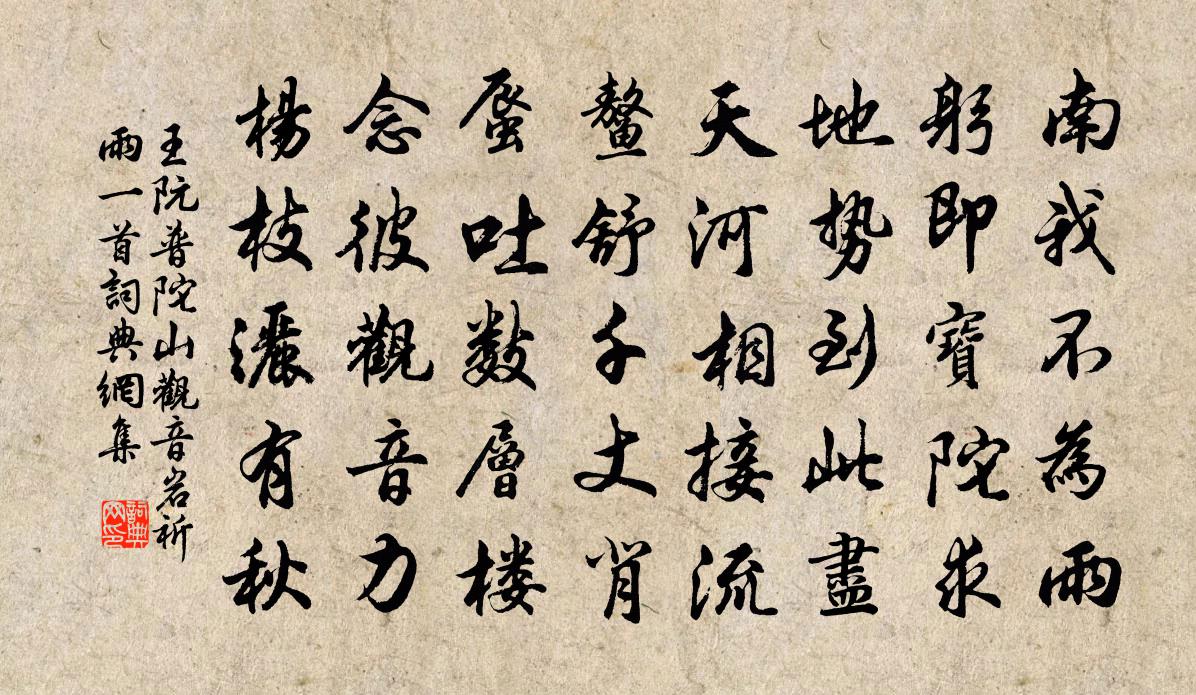 南我不為雨
躬即寶陀求
地勢到此盡
天河相接流
鰲舒千丈背
蜃吐數層樓
念彼觀音力
楊枝灑有秋
王阮普陀山觀音岩祈
雨一首詞典網集
詞典
网印